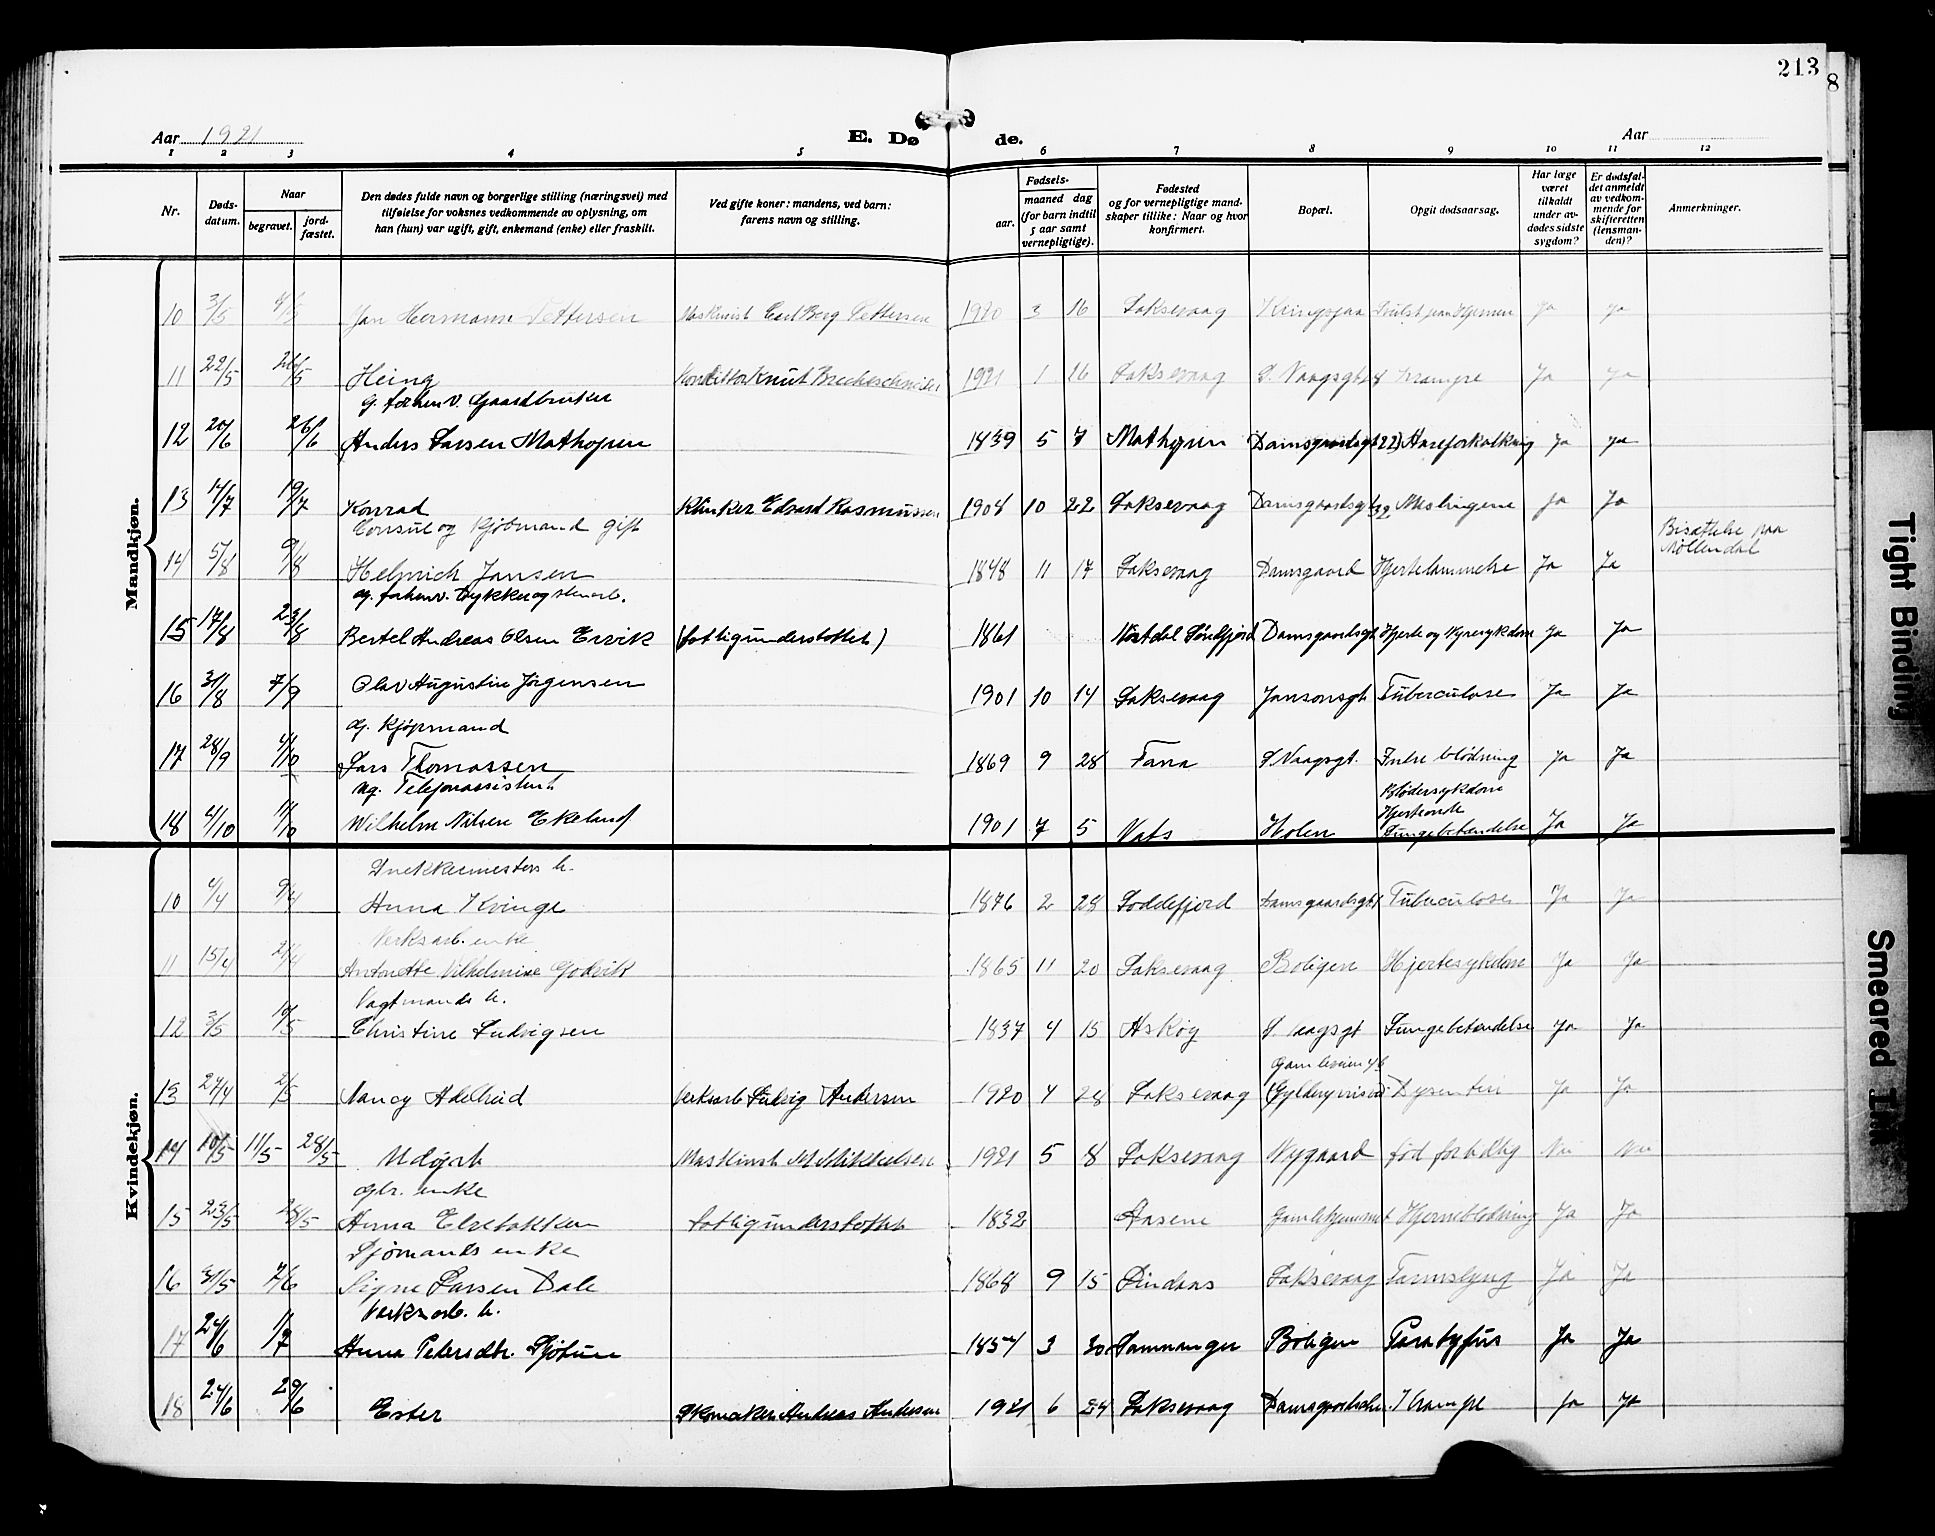 213
8
Aar 1921
E. Dø
de.
Aar
1 2 3 4 5 6 7 8 9 10 11 12
Nr.
Døds-
datum.
Naar
begravet.
jord-
fæstet.
Den dødes fulde navn og borgerlige stilling (næringsvei) med
tilføielse for voksnes vedkommende av oplysning, om
han (hun) var ugift, gift, enkemand (enke) eller fraskilt.
Ved gifte koner: mandens, ved barn:
farens navn og stilling.
Fødsels-
aar.
maaned dag
(for barn indtil
5 aar samt
vernepligtige).
Fødested
og for vernepligtige mand-
skaper tillike: Naar og hvor
konfirmert.
Bopæl.
Opgit dødsaarsag.
Har læge
været
tilkaldt
under av-
dødes sidste
sygdom?
Er dødsfal-
det anmeldt
av vedkom-
mende for
skifteretten
(lensman-
den)?
Anmerkninger.
Mandkjøn.
10 3/5 Jan Hermann Pettersen Maskinist Carl Berg Pettersen 1920 3 16 Laksevaag Kringsjaa Ja Ja
11 22/5 26/5 Heing Konditor Knut 1921 1 16 Laksevaag L. Vaagsgt 4 Krampe Ja Ja
g. forhenv. Gaardbruker
12 20/6 26/6 Anders Larsen Mathopen 1839 5 7 Mathopen Damsgaardsgt 22 Aareforkalkning Ja Ja
13 14/7 19/7 Konrad Klinker Edvard Rasmussen 1904 10 22 Laksevaag Damsgaardsgt 32 Meslingene Ja Ja
Consul og Kjøbmand gift
Bisættelse paa
Møllendal
14 5/8 9/8 Helmich Jansen 1848 11 17 Laksevaag Damsgaard Hjertelammelse Ja Ja
g. forhenv. Dykker og stenarb.
15 17/8 23/8 Bertel Andreas Olsen Ervik (fattigunderstøttet) 1861 Søndfjord Damsgaardsgt Hjerte og Nyresykdom Ja Ja
16 31/8 7/9 Olav Augustin Jørgensen 1901 10 14 Laksevaag Jansonsgt Tuberculose Ja Ja
g. Kjøpmand
17 28/9 4/10 Lars Thomassen 1869 9 28 Fana L Vaagsgt. Indre blødning Ja Ja
ug. Telefonassistent
Blødersykdom
18 4/10 11/10 Wilhelm Nilsen Ekeland 1901 7 5 Vats Holen Lungebetændelse Ja Ja
Kvindekjøn.
Snekkermesters h.
10 4/4 9/4 Anna Kvinge 1876 2 28 Loddefjord Damsgaardsgt Tuberculose Ja Ja
Verksarb. enke
11 15/4 21/4 Antonette Vilhelmine Godvik 1865 11 20 Laksevaag Boligen Hjertesykdom Ja Ja
Vagtmands h.
12 3/5 10/5 Christine Ludvigsen 1837 4 15 Askøy L Vaagsgt Lungebetændelse Ja Ja
Gamleveien 46
13 27/4 2/5 Nancy Adelheid Verksarb Ludvig Andersen 1920 4 28 Laksevaag Dysenteri Ja Ja
14 10/5 11/5 28/5 Udøpt Maskinist M Mikkelsen 1921 5 8 Laksevaag Nygaard født fortidlig Nei Nei
gbr. enke
15 23/5 28/5 Anna Elvebakken fattigunderstøttet 1832 Aasene Gamlehjemmet Hjerneblødning Ja Ja
Sjømands enke
16 31/5 7/6 Signe Larsen Dale 1868 9 15 Lindaas Laksevaag Tarmslyng Ja Ja
Verksarb. h.
17 24/6 1/7 Anna Petersdtr. Sjøtun 1854 3 30 Samnanger Boligen Paratyfus Ja Ja
18 24/6 29/6 Ester Skomaker Andreas Andersen 1921 6 24 Laksevaag Krampe Ja Ja
Tight Binding
Smeared Ink